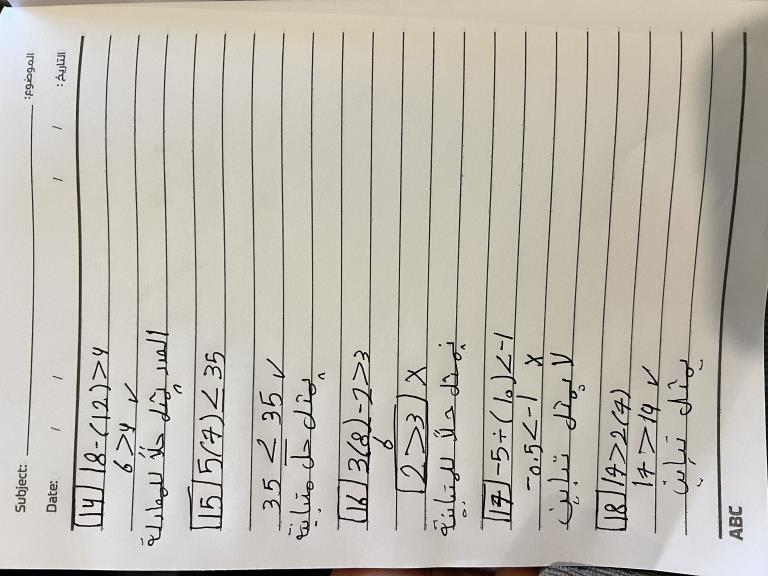 Subject: الموضوع:
Date: / / / / التاريخ:
14 18-(12)>4
6>4 ✓
العدد يمثل حلًا للمعادلة
15 5(7)≤35
35 ≤ 35 ✓
يمثل حل متباينة
16 3(8)-2>3
6
2>3 X
يمثل حلًا للمتباينة
17 -5÷(10)<-1
-0.5<-1 X
لا يمثل تباين
18 17>2(7)
17>14 ✓
يمثل تباين
ABC